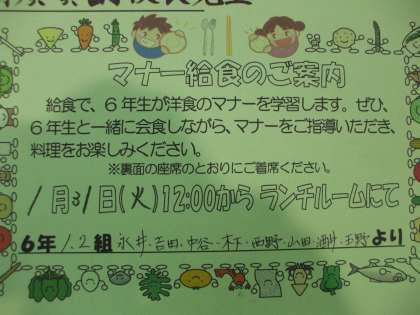 マナー給食のご案内
給食で、6年生が洋食のマナーを学習します。ぜひ、
6年生と一緒に会食しながら、マナーをご指導いただき、
料理をお楽しみください。
※裏面の座席のとおりにご着席ください。
1月31日(火)12:00から ランチルームにて
6年 1.2組 永井・吉田・中谷・木下・西野・山田・酒井・玉野 より